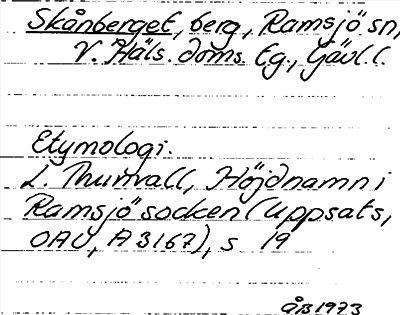 Skånberget, berg, Ramsjö sn,
V. Häls. doms. tg., Gävl. l.
Etymologi.
L. Thunvall, Höjdnamn i
Ramsjö socken (uppsats,
OAU, A 3167), s 19
ÅB 1973